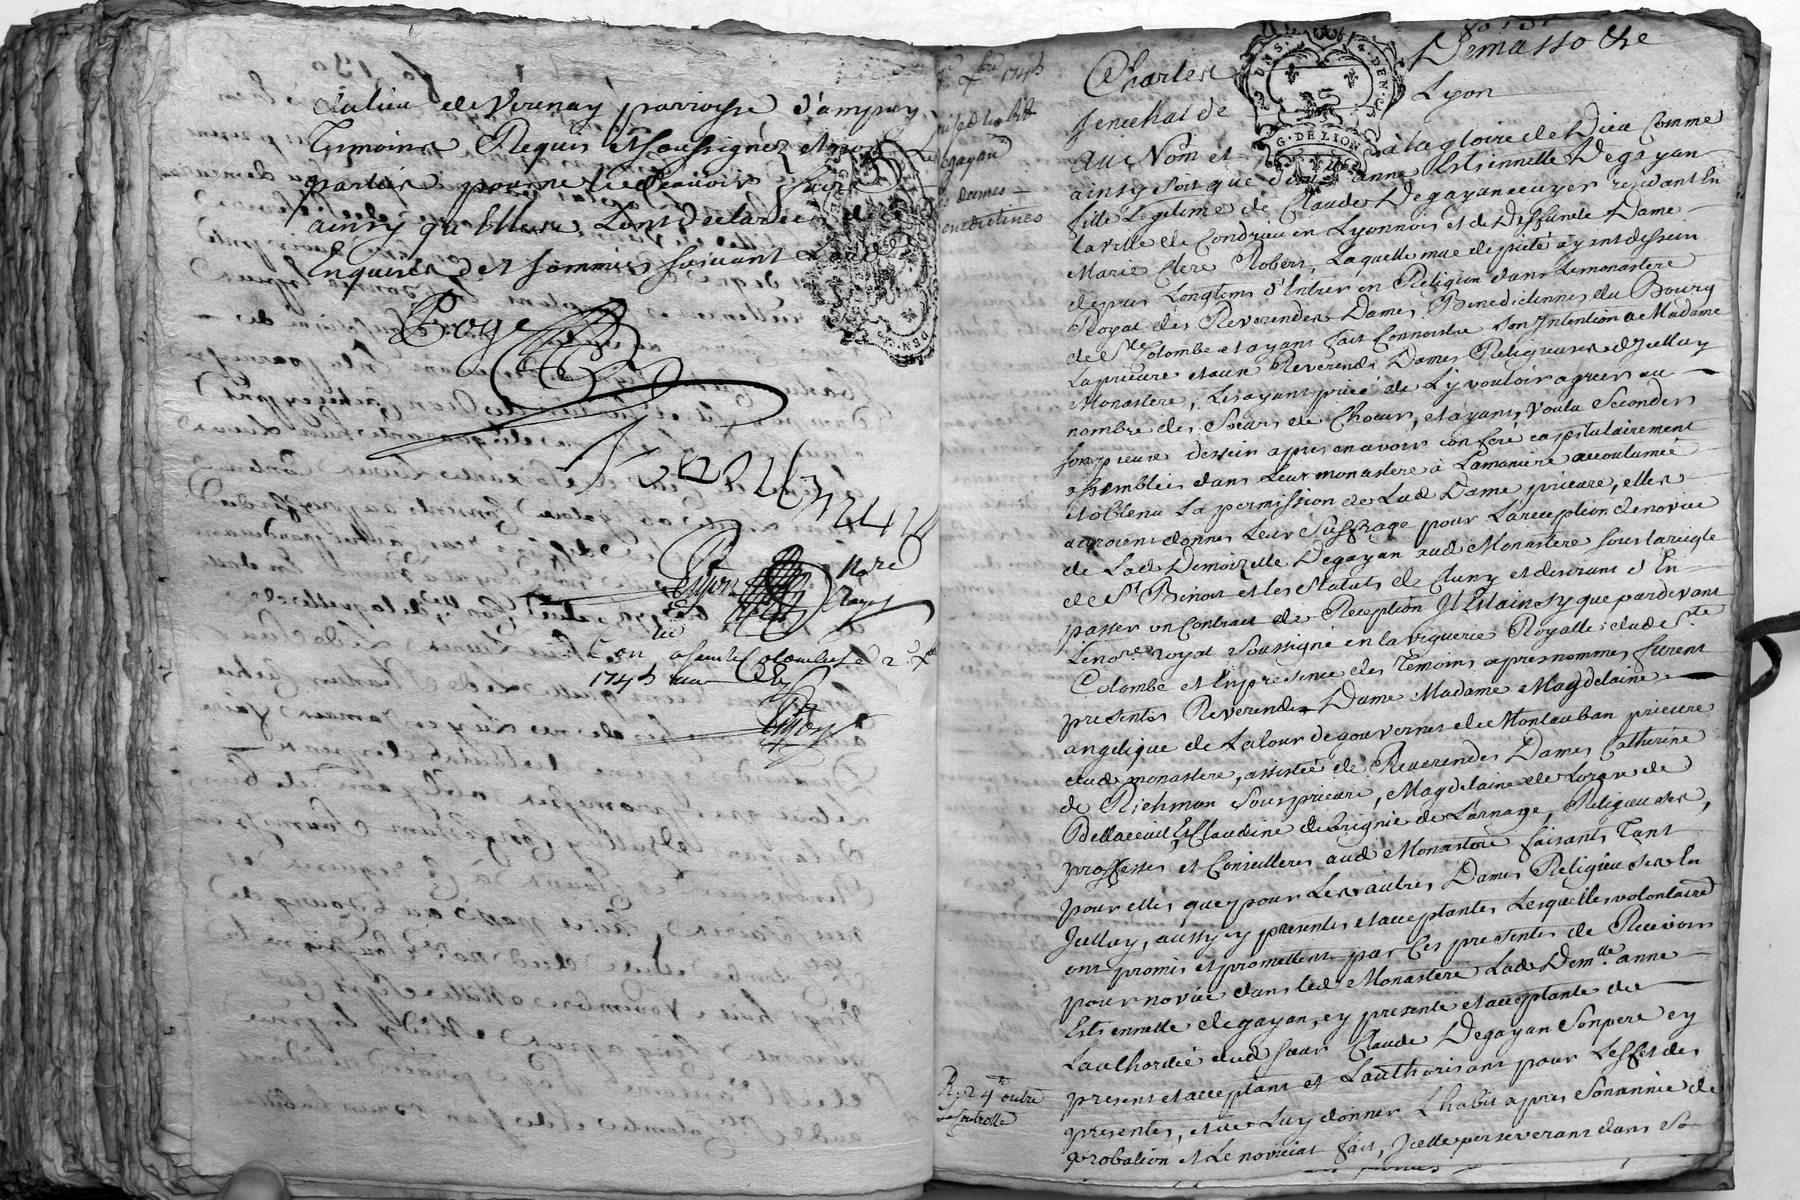 Julien de Verenay parroisse d'ampuy
Temoins Requis et soussignez et non les
parties pour ne le sçavoir faire
ainsy qu'elles l'ont declaré de ce
Enquises et sommées suivant l'ord
Roge
Pierre
No.re
Royal
Con.lé a sainte Colombe le 2 x.bre
1745
x.bre 1745
prise d'habit
Degayan
Les dames
benedictines
Charles
Demasso Che
Senechal de
Lyon
G. DE LION
au Nom et à la gloire de Dieu Comme
ainsy soit que dem.lle anne Estiennette Degayan
fille Legitime de Claude Degayan ecuyer residant En
la ville de Condrieu en Lyonnois et de Deffunte Dame
Marie Clere Robert, Laquelle mue de pieté ayant dessein
depuis Longtems d'Entrer en Religion dans Le monastere
Royal des Reverendes Dames Benedictinnes du Bourg
de S.te Colombe et ayant fait Connoistre son Intention a Madame
La prieure et aux Reverendes Dames Religieuses d'Icelluy
Monastere, Les ayant prié de L'y vouloir agreer au
nombre des Sœurs de Chœur, et ayant voulu Seconder
son pieux dessein apres en avoir conferé capitulairement
assemblées dans Leur monastere à La maniere accoutumée
et obtenu La permission de Lad Dame prieure, elles
auroient donnés Leur suffrage pour La reception de novice
de Lad Demoizelle Degayan aud Monastere sous la reigle
de S.t Benoit et les Statuts de Cluny et desirant d'En
passer un Contract de Reception Il Est ainsy que pardevant
Le no.re royal soussigné en la viguerie Royalle dud S.te
Colombe et En presence des Temoins apres nommes furent
presentes Reverende Dame Madame Magdelaine
angelique de Latour degouvernes de Montauban prieure
dud monastere, assistée de Reverendes Dames Catherine
de Richman Sousprieure, Magdelaine de Loras de
Bellaceuil, Et Claudine de Brignie de Larnage, Religieuses,
professes et Conseilleres aud Monastere faisants Tant
pour elles que pour Les autres Dames Religieuses En
Icelluy, aussy y presentes et acceptantes Lesquelles volontaires
ont promis et promettent par Ces presentes de Recevoir
pour novice dans led Monastere Lad Dem.lle anne
Estiennette degayan, ey presente et acceptante de
L'authorité dud sieur Claude Degayan Son pere ey
present et acceptant et L'authorisant pour L'effet des
presentes, et de Luy donner L'habit apres Son année de
probation et Le noviciat fait, Icelle perseverant dans Sa
R. 24 outre
Le Controlle